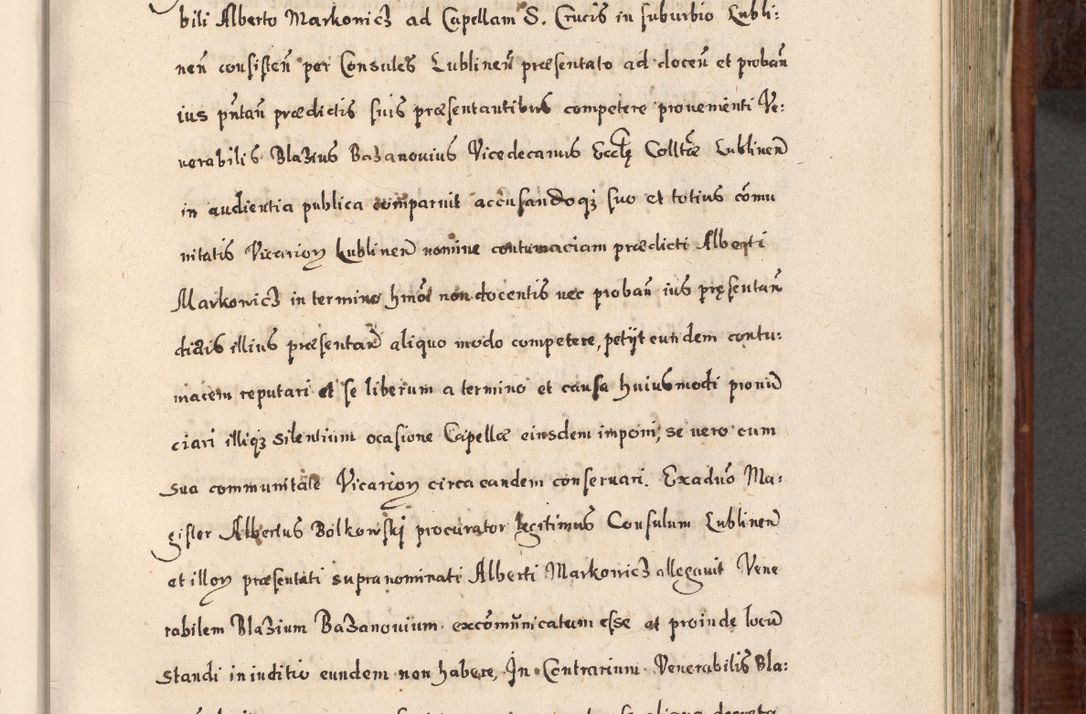 bili Alberto Markowicz ad Capellam S. Crucis in suburbio Lubli:
neñ consisteñ per Consules Lublineñ præsentato ad doceñ et probañ
ius pñtañ prædictis suis præsentantibus competere provenienti Ve:
nerabilis Blazius Bazanovius Vicedecanus Eccłę Colltæ Lublineñ
in audientia publica comparuit accusandoqꝫ suo et totius cõmu
nitatis Vicarioꝝ Lublineñ nomine contumaciam prædicti Alberti
Markowicz in termino hmõi non docentis nec probañ ius pręsentañ
dictis illius præsentañ aliquo modo competere, petijt eundem contu:
macem reputari et se liberum a termino et causa huiusmodi pronũ
ciari illiqꝫ silentium ocasione Capellæ eiusdem imponi, se vero cum
sua communitate Vicarioꝝ circa eandem conservari. Ex aduõ Ma:
gister Albertus Bolkowskj procurator legitimus Consulum Lublineñ
et illoꝝ præsentati supra nominati Alberti Markowicz allegavit Vene
rabilem Blazium Bazanovium excõmũnicatum esse et proinde locũ
standi in iuditio eundem non habere, In Contrarium Venerabilis Bla: